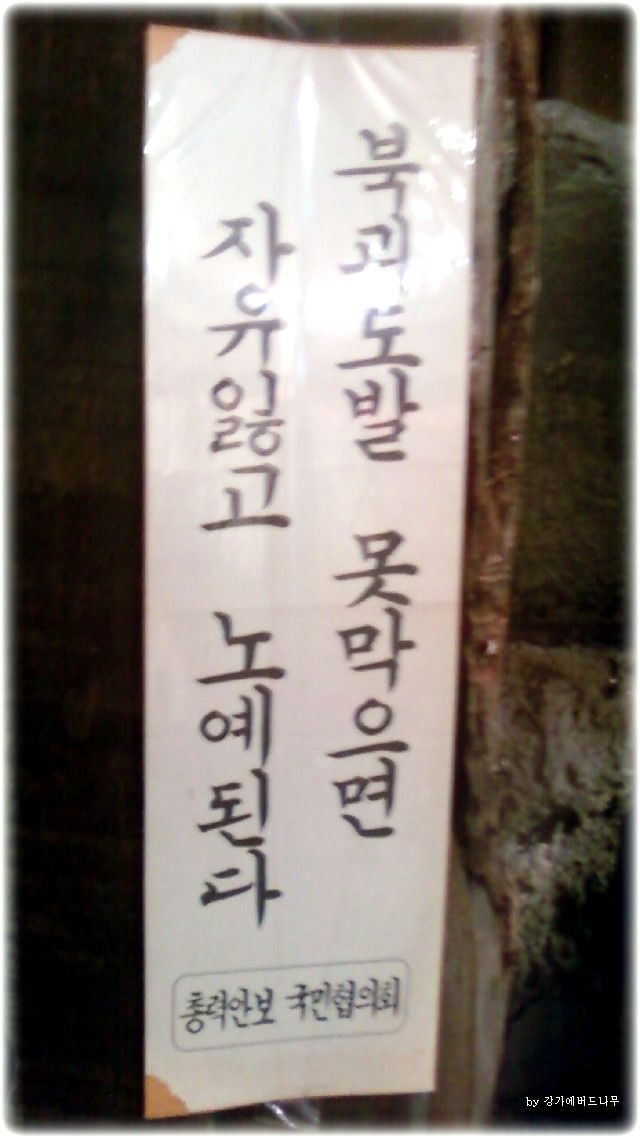 북괴도발 못막으면
자유잃고 노예된다
총력안보 국민협의회
by 강가에버드나무